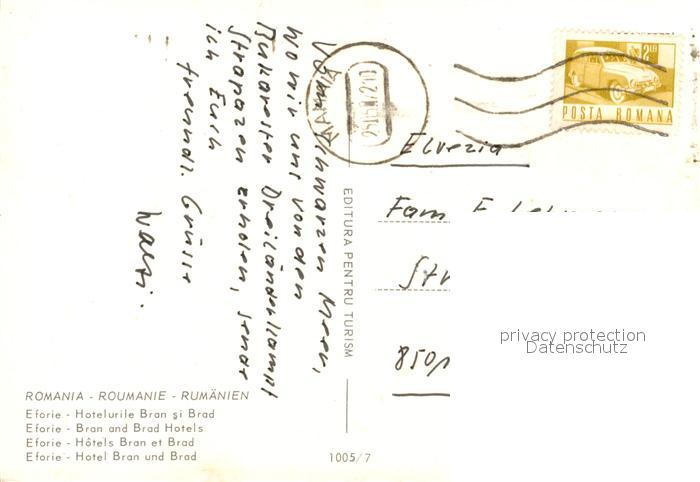 Vom Schwarzen Meer,
wo wir uns von den
Bukarester Dreiländerkampf
Strapazen erholen, sende
ich Euch
freundl. Grüsse
MAMAIA
2 LEI
POSTA ROMANA
Elvezia
Fam
850
EDITURA PENTRU TURISM
privacy protection
Datenschutz
ROMANIA - ROUMANIE - RUMÄNIEN
Eforie - Hotelurile Bran şi Brad
Eforie - Bran and Brad Hotels
Eforie - Hôtels Bran et Brad
Eforie - Hotel Bran und Brad
1005/7